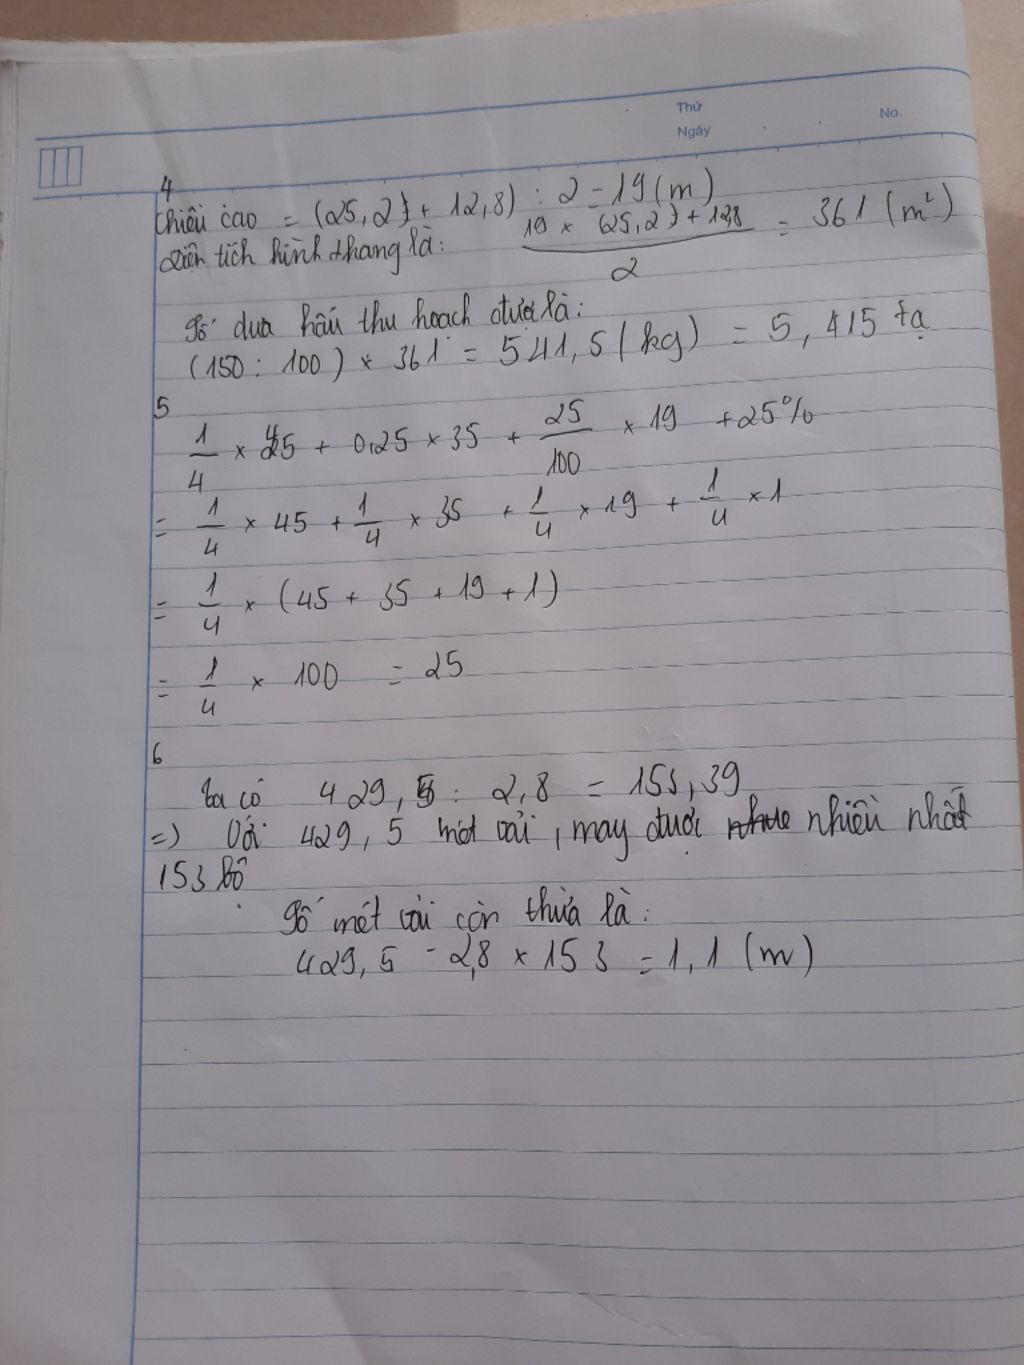 Thứ
Ngày
No.
4
Chiều cao = (25,2 + 12,8) : 2 = 19 (m)
Diện tích hình thang là: 19 x (25,2) + 12,8 / 2 = 361 (m²)
Số dưa hấu thu hoạch được là:
(150 : 100) x 361 = 541,5 (kg) = 5,415 tạ
5
1/4 x 45 + 0,25 x 35 + 25/100 x 19 + 25%
= 1/4 x 45 + 1/4 x 35 + 1/4 x 19 + 1/4 x 1
= 1/4 x (45 + 35 + 19 + 1)
= 1/4 x 100 = 25
6
Ta có 429,5 : 2,8 = 153,39
=) Với 429,5 mét vải, may được nhiều nhất
153 bộ
Số mét vải còn thừa là:
429,5 - 2,8 x 153 = 1,1 (m)